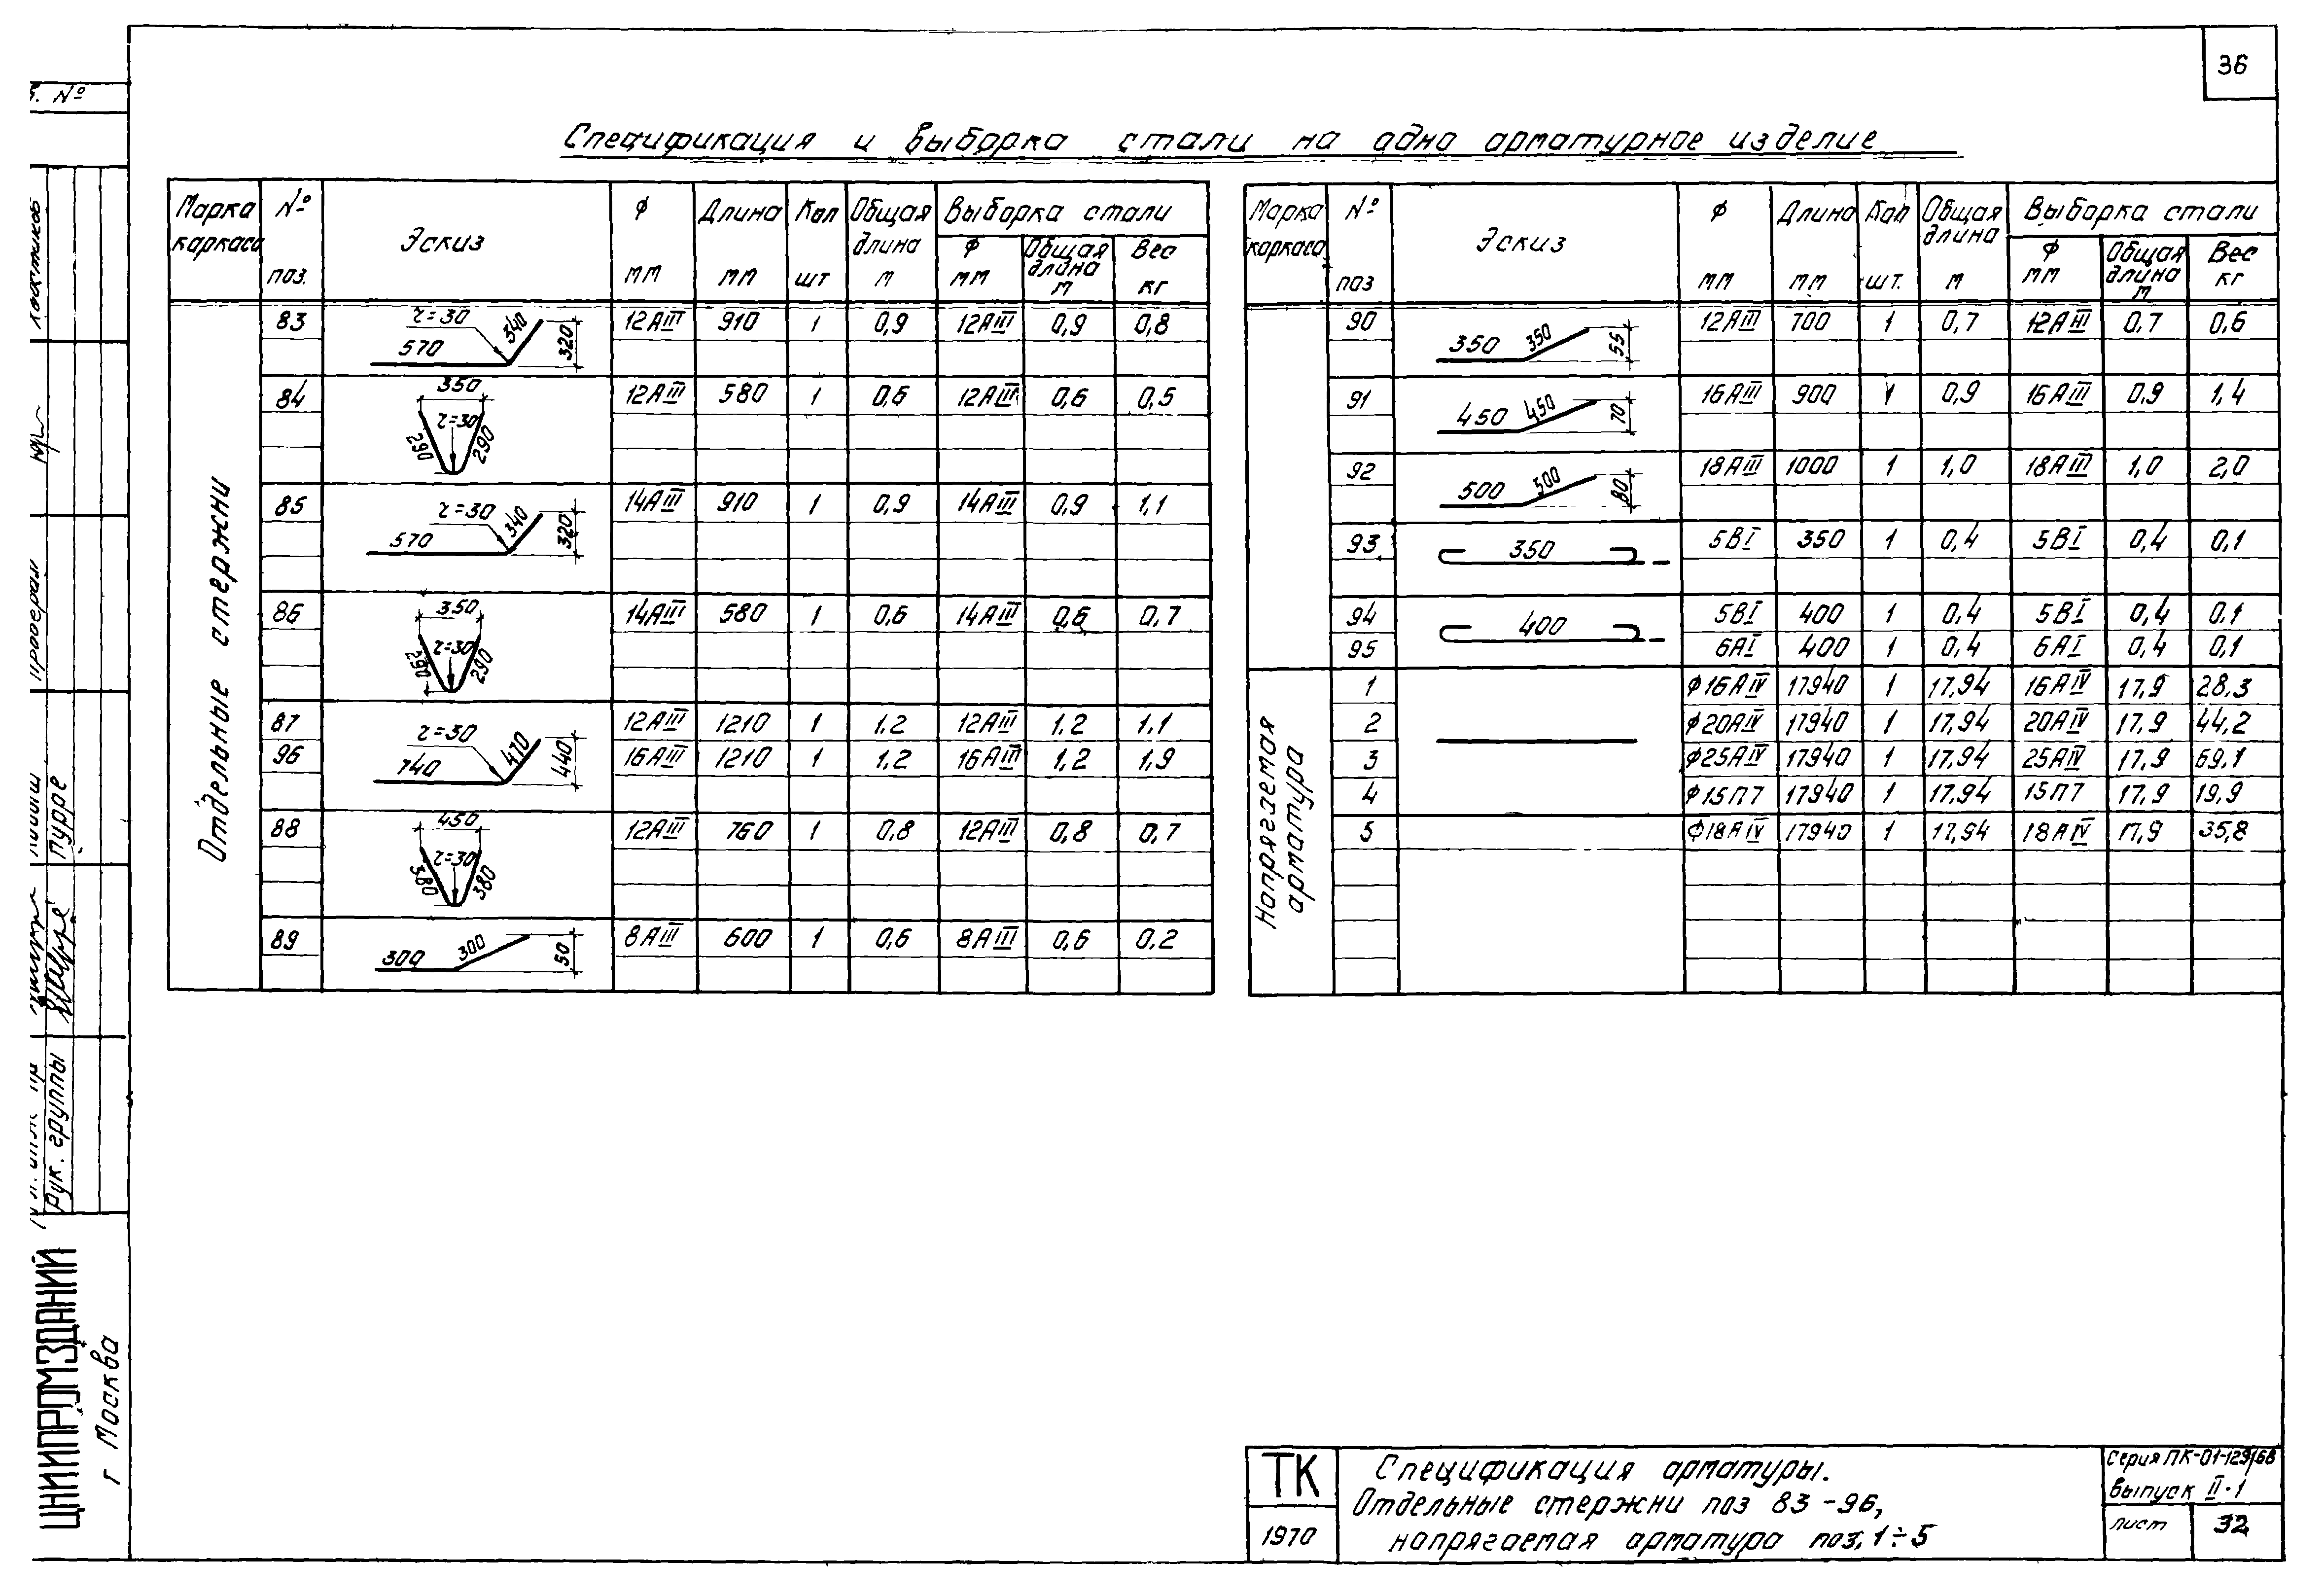 36
Спецификация и выборка стали на одно арматурное изделие
Марка каркаса № поз. Эскиз ϕ мм Длина мм Кол шт Общая длина м Выборка стали ϕ мм Общая длина м Вес кг
Отдельные стержни
83 570 r=30 340 320 12АIII 910 1 0,9 12АIII 0,9 0,8
84 350 r=30 290 290 12АIII 580 1 0,6 12АIII 0,6 0,5
85 570 r=30 340 320 14АIII 910 1 0,9 14АIII 0,9 1,1
86 350 r=30 290 290 14АIII 580 1 0,6 14АIII 0,6 0,7
87 r=30 470 440 12АIII 1210 1 1.2 12АIII 1.2 1.1
96 740 16АIII 1210 1 1.2 16АIII 1,2 1,9
88 450 r=30 380 380 12АIII 760 1 0,8 12АIII 0,8 0,7
89 300 300 50 8АIII 600 1 0,6 8АIII 0,6 0.2
Марка каркаса № поз Эскиз ϕ мм Длина мм Кол шт. Общая длина м Выборка стали ϕ мм Общая длина м Вес кг
90 350 350 55 12АIII 700 1 0,7 12АIII 0,7 0,6
91 450 450 70 16АIII 900 1 0,9 16АIII 0,9 1,4
92 500 500 80 18АIII 1000 1 1,0 18АIII 1,0 2,0
93 350 5ВI 350 1 0,4 5ВI 0,4 0,1
94 400 5ВI 400 1 0,4 5ВI 0,4 0.1
95 6АI 400 1 0,4 6АI 0,4 0,1
Напрягаемая арматура
1 ϕ16АIV 17940 1 17,94 16АIV 17,9 28,3
2 ϕ20АIV 17940 1 17,94 20АIV 17,9 44,2
3 ϕ25АIV 17940 1 17,94 25АIV 17,9 69,1
4 ϕ15П7 17940 1 17,94 15П7 17,9 19,9
5 ϕ18АIV 17940 1 17,94 18АIV 17,9 35,8
ТК
1970
Спецификация арматуры.
Отдельные стержни поз 83-96,
напрягаемая арматура поз, 1÷5
Серия ПК-01-129/68
Выпуск II-1
лист 32
№
Пурре
Рук. группы
ЦНИИПРОМЗДАНИЙ
г Москва